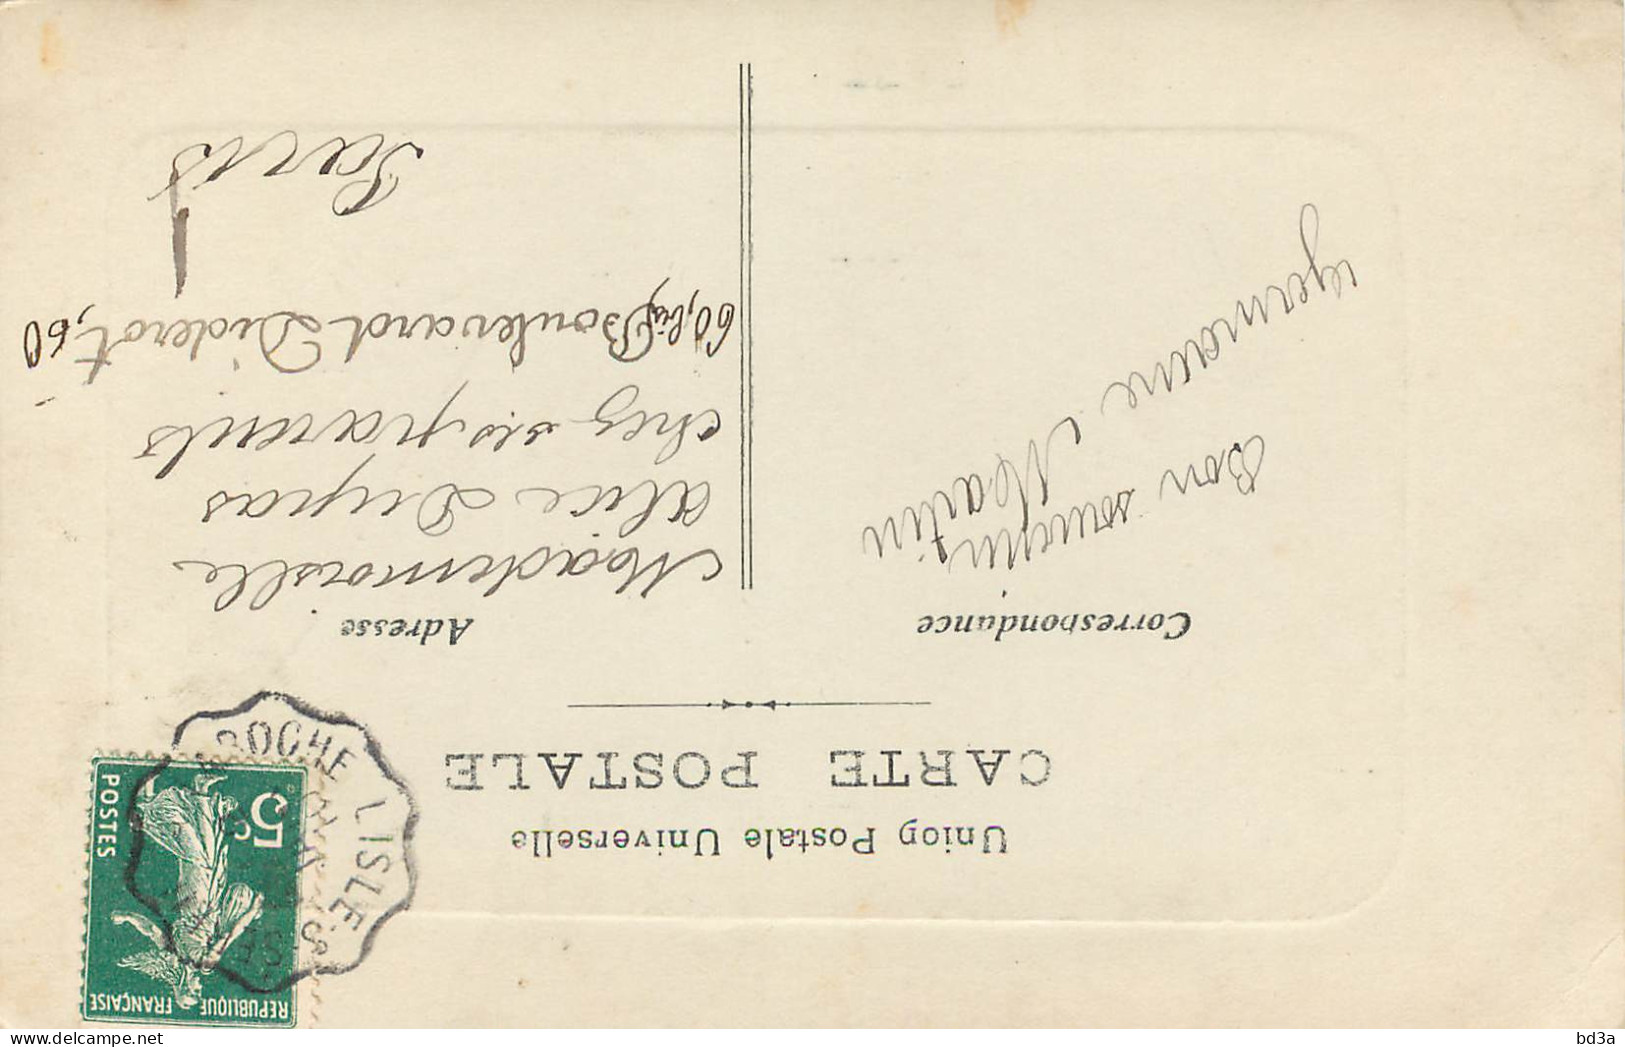 Union Postale Universelle
CARTE POSTALE
Correspondance
Adresse
Bon souvenir
Germaine Martin
Mademoiselle
Alice Dupas
chez ses parents
60, bis Boulevard Diderot, 60
Paris
5c
POSTES
REPUBLIQUE FRANÇAISE
ROCHE L'ISLE
bd3a